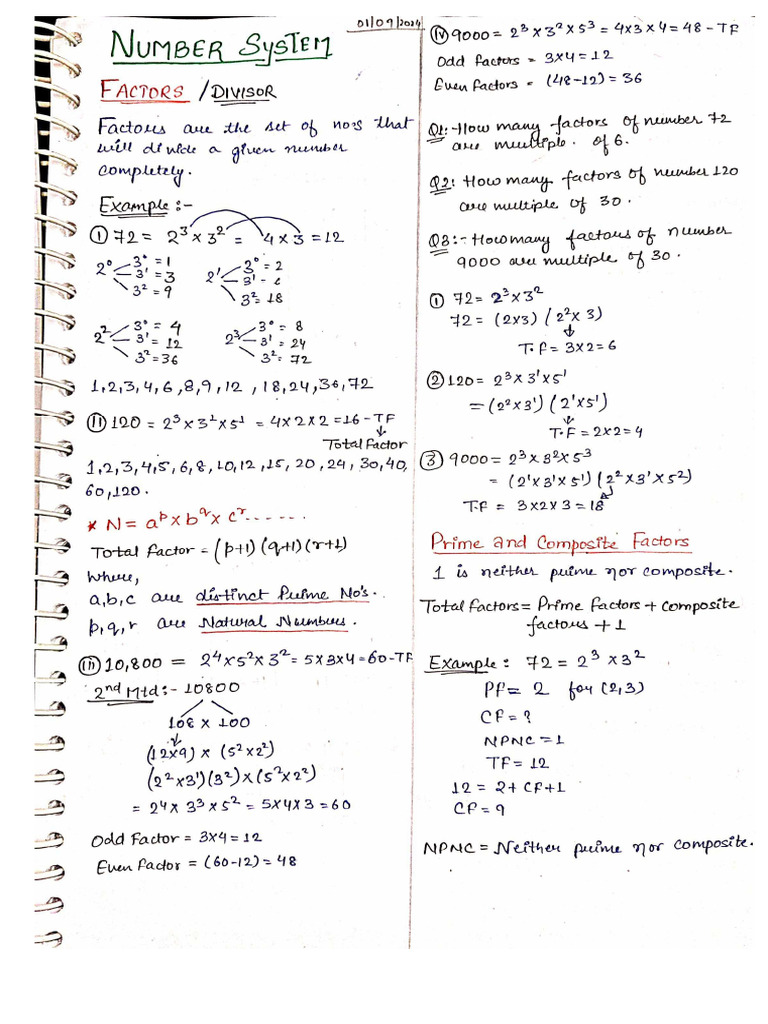 01/09/2024
NUMBER SYSTEM
FACTORS / DIVISOR
Factors are the set of no's that
will divide a given number
completely.
Example :-
① 72 = 2³ × 3² = 4 × 3 = 12
2⁰ 3⁰ = 1
3¹ = 3
3² = 9
2¹ 3⁰ = 2
3¹ - 6
3² = 18
2² 3⁰ = 4
3¹ = 12
3² = 36
2³ 3⁰ = 8
3¹ = 24
3² = 72
1, 2, 3, 4, 6, 8, 9, 12, 18, 24, 36, 72
(ii) 120 = 2³ × 3¹ × 5¹ = 4 × 2 × 2 = 16 - TF
↓
Total Factor
1, 2, 3, 4, 5, 6, 8, 10, 12, 15, 20, 24, 30, 40,
60, 120.
* N = aᵖ × b^q × cʳ ------
Total factor = (p+1) (q+1) (r+1)
where,
a, b, c are distinct Prime No's.
p, q, r are Natural Numbers.
(iii) 10,800 = 2⁴ × 5² × 3² = 5 × 3 × 4 = 60 - TF
2nd Mtd :- 10800
108 × 100
↓
(12×9) × (5² × 2²)
(2² × 3¹) (3²) × (5² × 2²)
= 2⁴ × 3³ × 5² = 5 × 4 × 3 = 60
Odd Factor = 3 × 4 = 12
Even Factor = (60-12) = 48
(iv) 9000 = 2³ × 3² × 5³ = 4 × 3 × 4 = 48 - TF
Odd Factors = 3 × 4 = 12
Even Factors = (48-12) = 36
Q1:- How many factors of number 72
are multiple. of 6.
Q2: How many factors of number 120
are multiple of 30.
Q3:- How many factors of number
9000 are multiple of 30.
① 72 = 2³ × 3²
72 = (2×3) (2² × 3)
↓
T.F = 3 × 2 = 6
② 120 = 2³ × 3¹ × 5¹
= (2² × 3¹) (2¹ × 5¹)
↓
T.F = 2 × 2 = 4
③ 9000 = 2³ × 3² × 5³
= (2¹ × 3¹ × 5¹) (2² × 3¹ × 5²)
T.F = 3 × 2 × 3 = 18
Prime and Composite Factors
1 is neither prime nor composite.
Total Factors = Prime Factors + composite
factors + 1
Example : 72 = 2³ × 3²
PF = 2 for (2,3)
CF = ?
NPNC = 1
TF = 12
12 = 2 + CF + 1
CF = 9
NPNC = Neither prime nor composite.